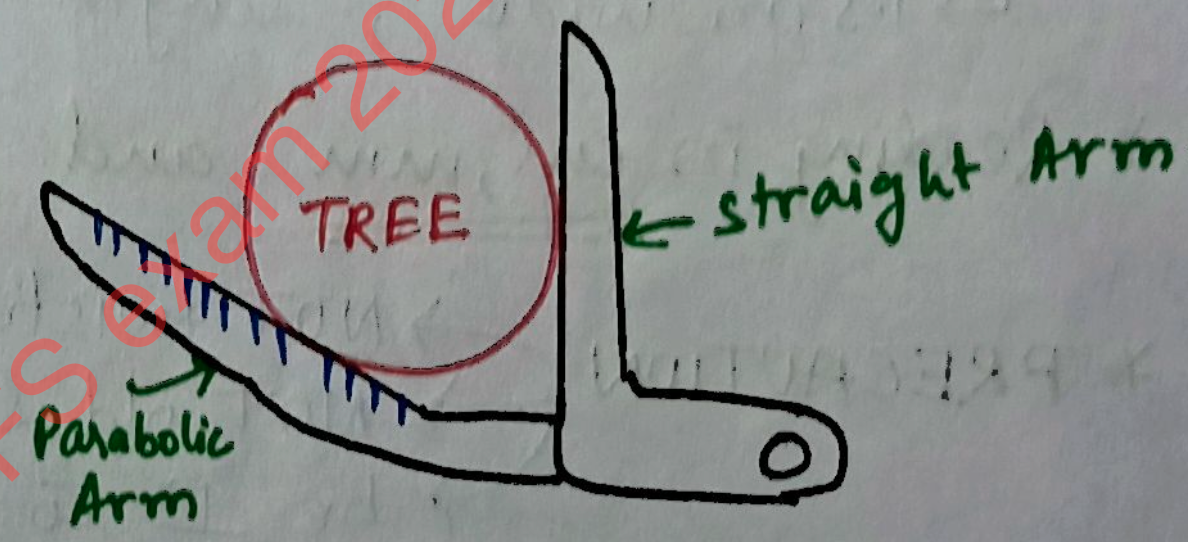 TREE
straight Arm
Parabolic
Arm
FS exam 202